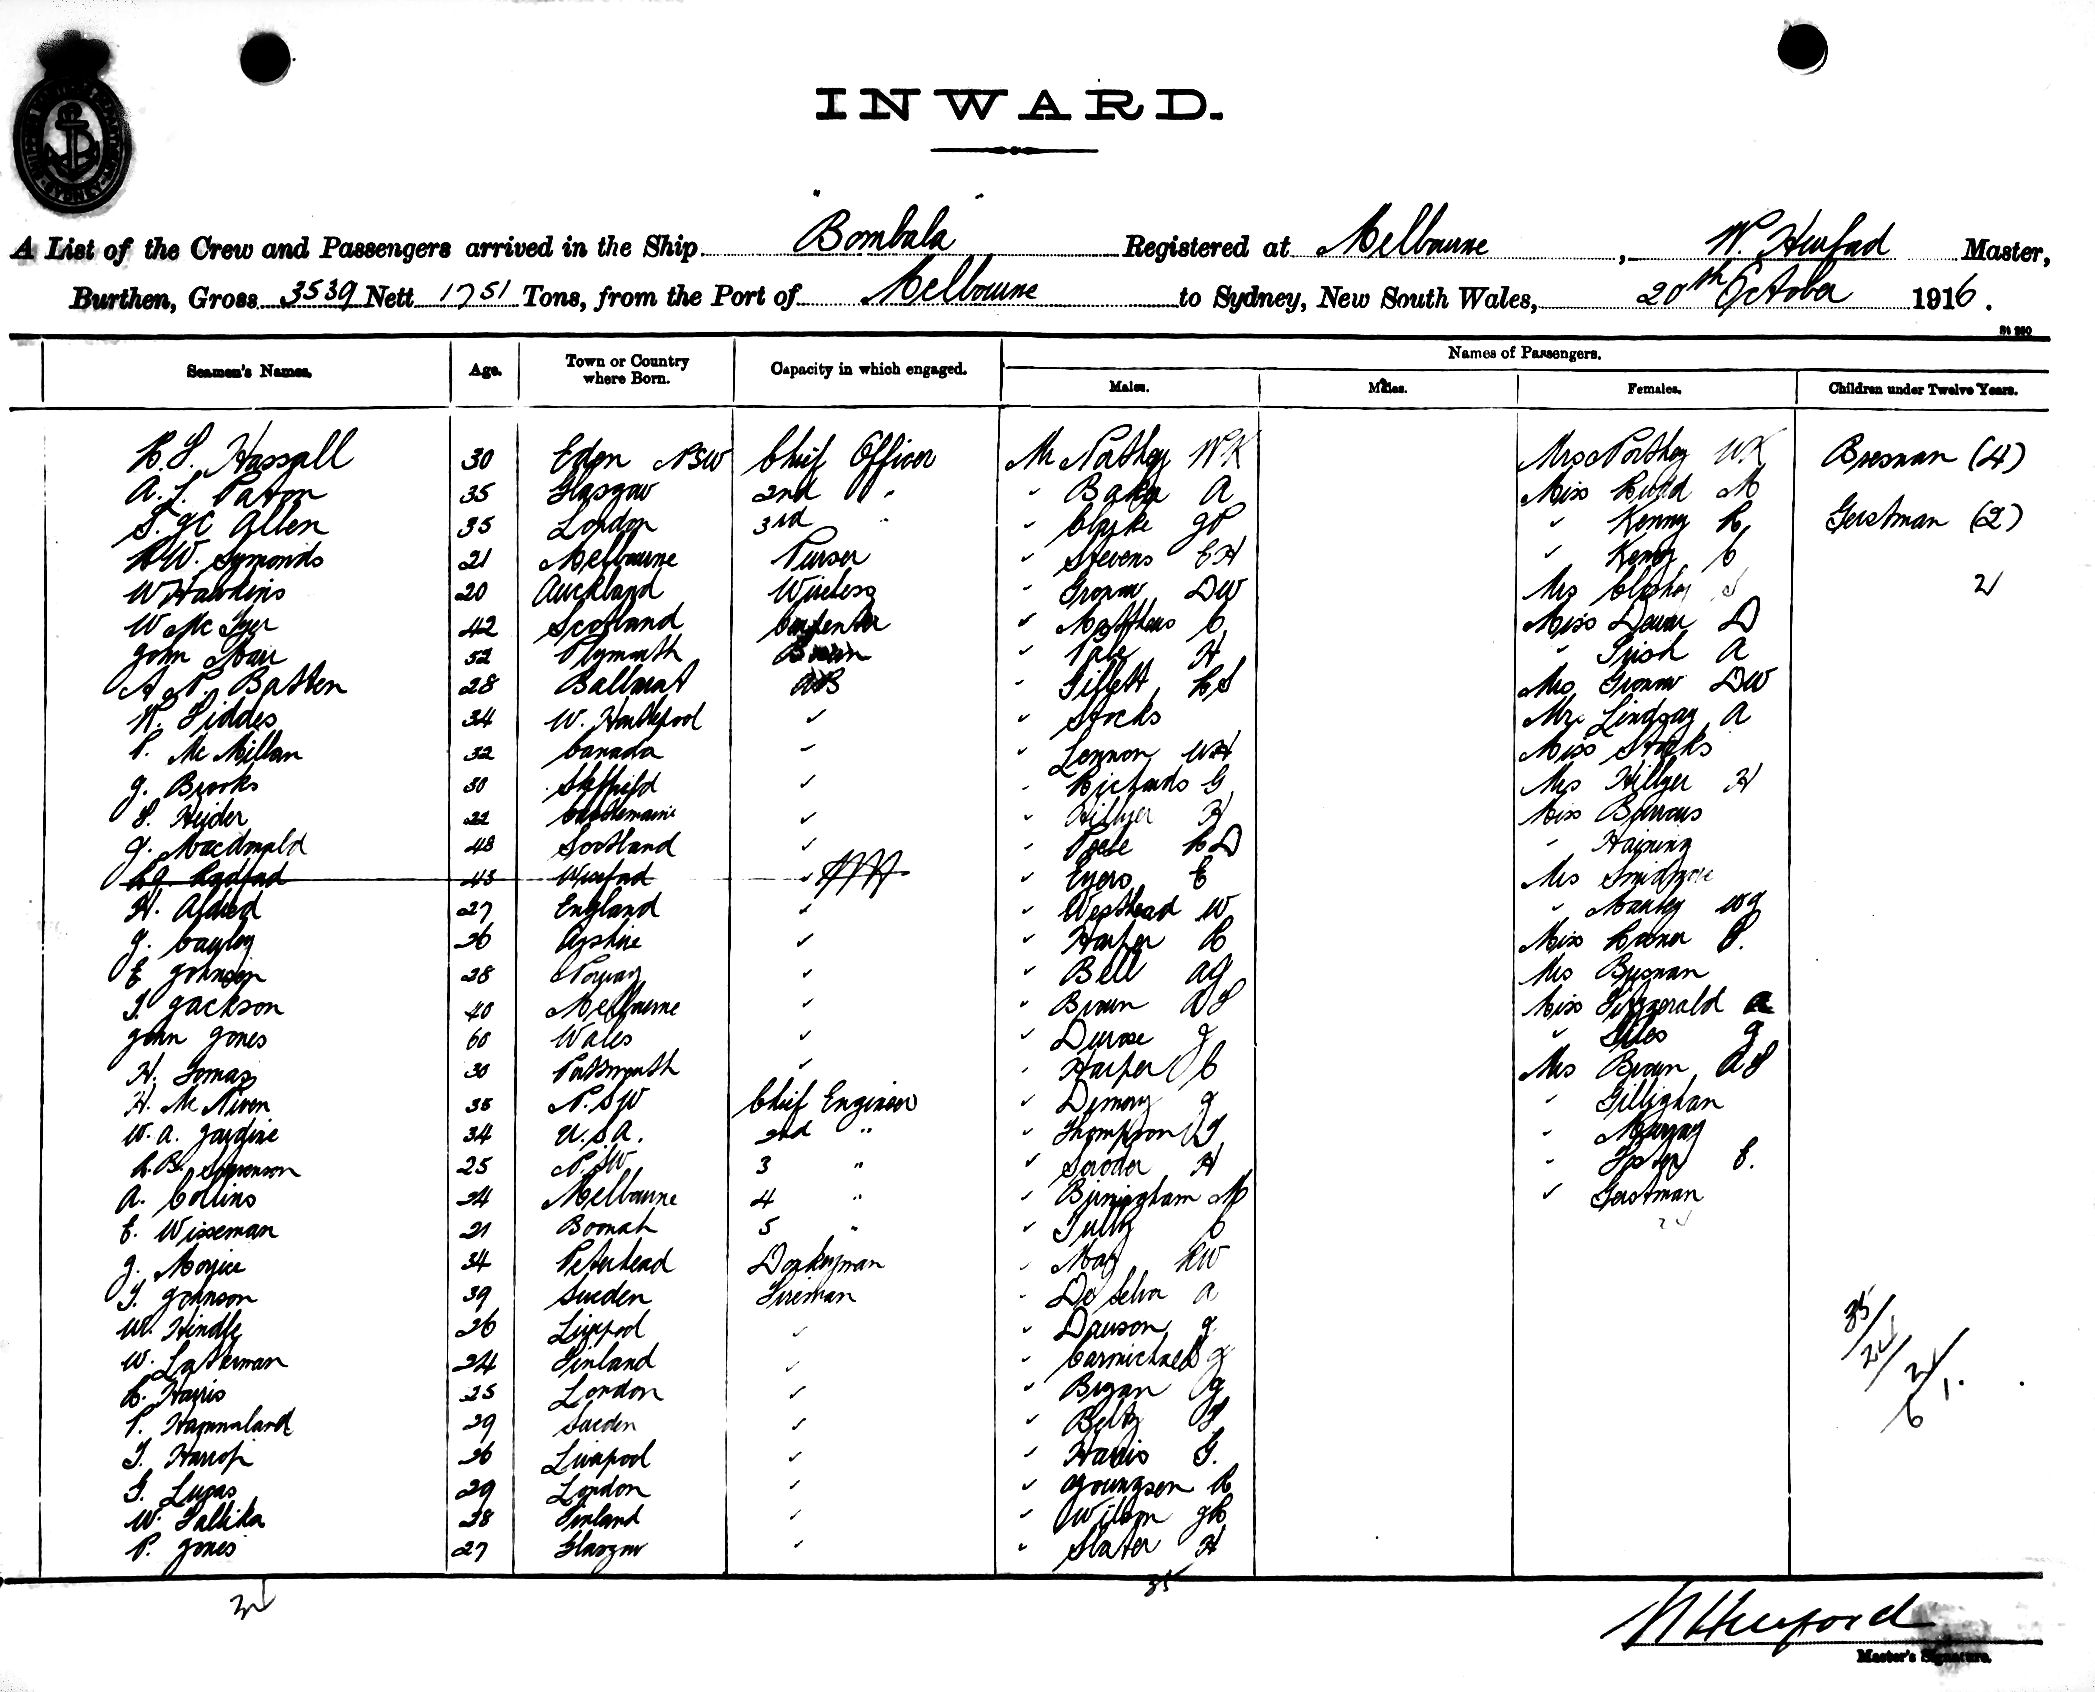 INWARD.
A List of the Crew and Passengers arrived in the Ship "Bombala" Registered at Melbourne, W. Hurford Master,
Burthen, Gross 3539 Nett 1751 Tons, from the Port of Melbourne to Sydney, New South Wales, 20th October 1916.
St 260
Names of Passengers.
Seamen's Names. Age. Town or Country where Born. Capacity in which engaged. Males. Males. Females. Children under Twelve Years.
Hassall 30 Eden NSW Chief Officer Mr Northey WK Mrs Northey WK Bresnan (4)
A. L. Paton 35 Glasgow 2nd " " Baker A Miss Rudd M
Allen 35 London 3rd " " Clarke " Kenny R Gerstman (2)
RW. Symonds 21 Melbourne Purser " Stevens EH " Kenny C
W Hawkins 20 Auckland Wireless " Gronow DW Mrs 2
W Mc 42 Scotland Carpenter " Matthews C Miss D
John Marr 52 Plymouth " H " Irish A
A P. Batten 28 Ballarat AB " Gillett RS Mrs Gronow DW
Fiddes 34 W. Hartlepool " " Stocks Mrs Lindsay A
P. Mc Millan 32 Canada " " Lennon WH Miss Stocks
J. Brooks 30 Sheffield " " Richards G Mrs Hillyer H
Heider 22 Castlemaine " " Hillyer H Miss Burrows
J. Macdonald 48 Scotland " " RD " Haining
45 " " Eyers E Mrs
H. Aldred 27 England " " Westhead W " Manley WJ
J. Cayley 26 Ayrshire " " Harper R Miss
E Johnson 28 Norway " " Bell AG Mrs Bresnan
T. Jackson 40 Melbourne " " Brown AS Miss Fitzgerald A
John Jones 60 Wales " " Durose J " Giles J
H. Lomas 30 Portsmouth " " Harper C Mrs Brown AS
H. Mc Niven 35 N.SW Chief Engineer " J " Gillighan
W. A. Jardine 34 U.S.A. 2nd " " Thompson " Murray
R.B. Stevenson 25 N.SW 3 " " H " E.
A. Collins 24 Melbourne 4 " " Birmingham M " Gerstman
E. Wisseman 21 Boonah 5 " " Tully C
J. Morrice 34 Peterhead Donkeyman " May RW
T. Johnson 39 Sweden Fireman " De Selva A
W. Hindle 26 Liverpool " " Dawson J
W. Laterman 24 Finland " " Carmichael J
R. Harris 25 London " " Bryan J
P. Hammarland 29 Sweden " " Beltz
T. Harrop 26 Liverpool " " Harris G.
G. Lucas 29 London " " Youngson R
W. Tallika 28 Finland " " Wilson JR
P. Jones 27 Glasgow " " Slater H
35
Master's Signature.